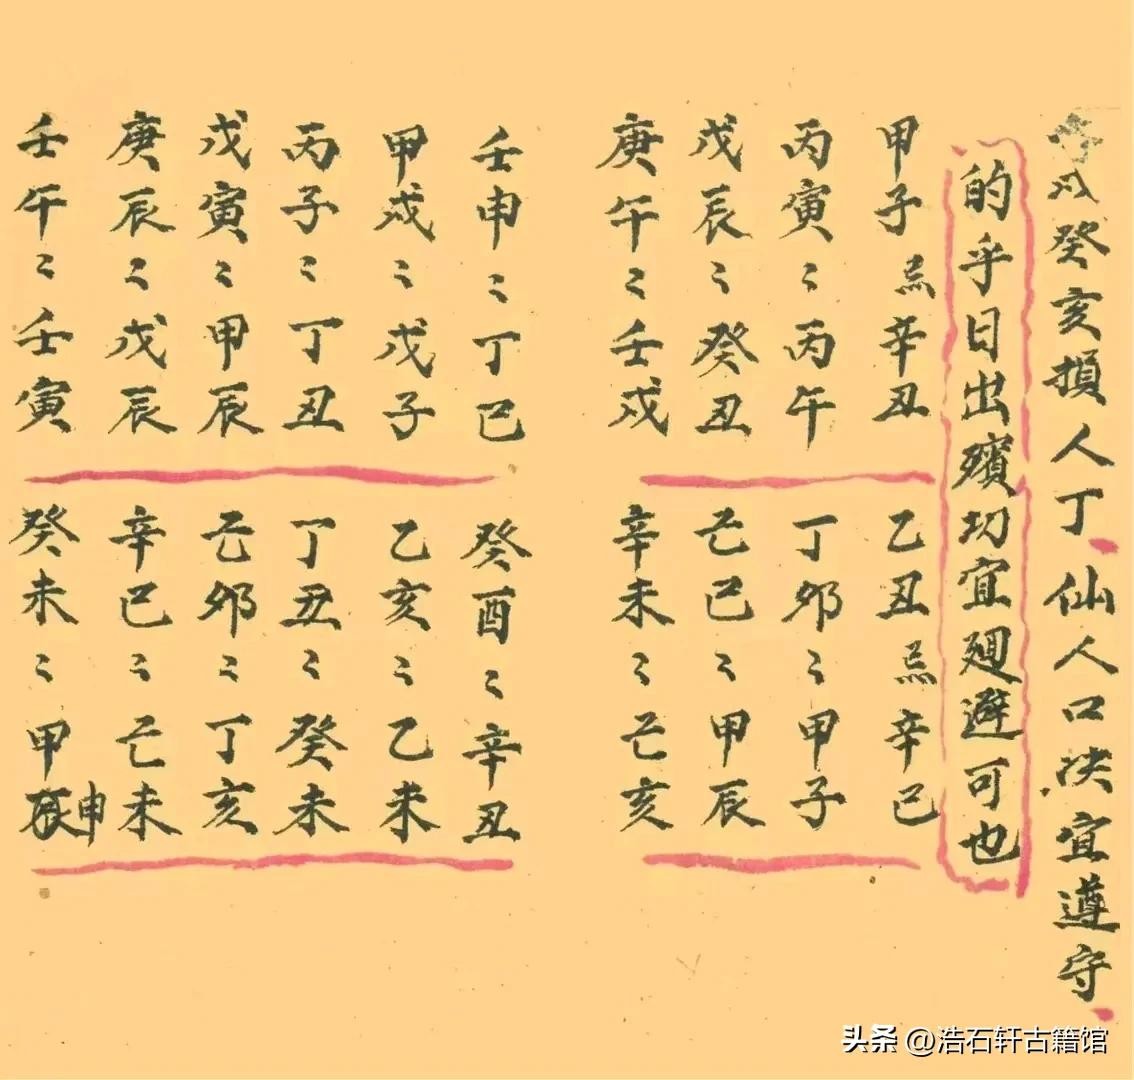 癸亥損人丁仙人口决宜遵守
的乎日出殯切宜廻避可也
甲子忌辛丑
乙丑忌辛巳
丙寅〻丙午
丁卯〻甲子
戊辰〻癸丑
己巳〻甲辰
庚午〻壬戌
辛未〻己亥
壬申〻丁巳
癸酉〻辛丑
甲戌〻戊子
乙亥〻乙未
丙子〻丁丑
丁丑〻癸未
戊寅〻甲辰
己卯〻丁亥
庚辰〻戊辰
辛巳〻己未
壬午〻壬寅
癸未〻甲申
头条 @浩石轩古籍馆